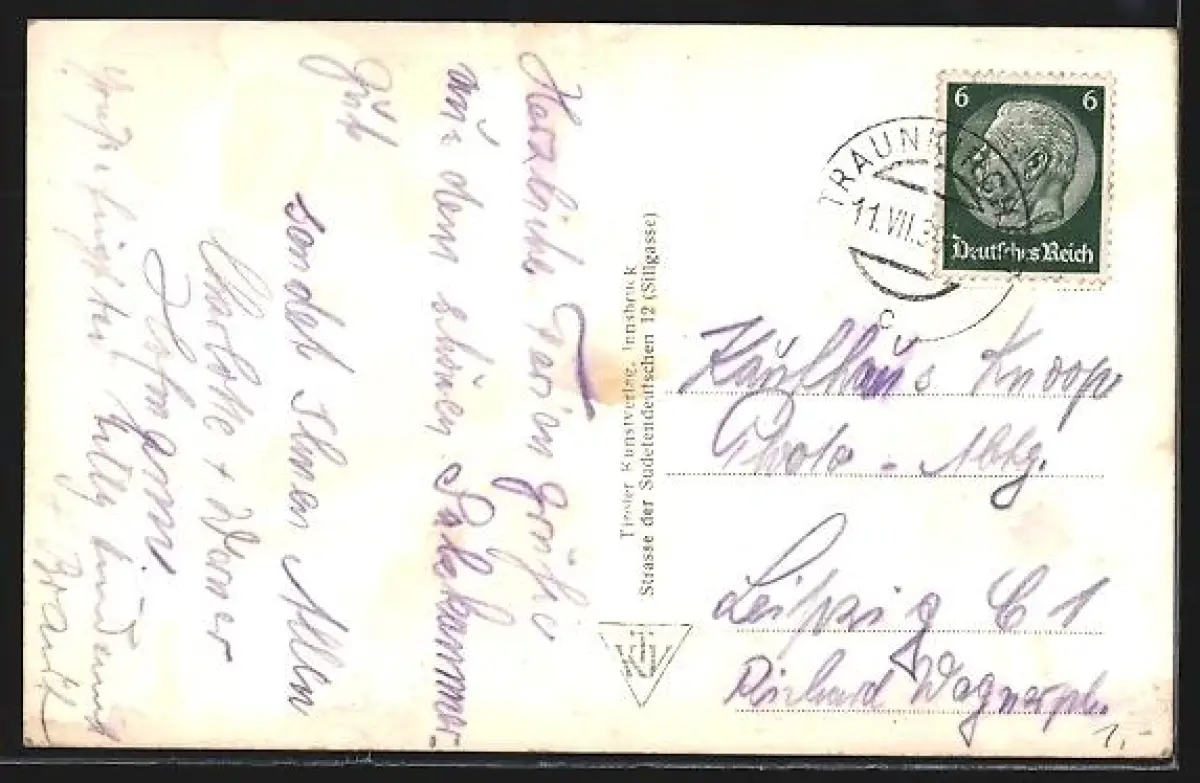 Herzliche Ferien Grüße
aus dem schönen Salzkammer-
gut
sendet Ihnen Allen
Charlotte + Werner
Tiroler Kunstverlag, Innsbruck
Strasse der Sudetendeutschen 12 (Sillgasse)
6 6
Deutsches Reich
TRAUNKIRCH
11.VII.3
c
Kaufhaus Knoop
Photo - Abtg.
Leipzig C 1
Richard Wagnerpl.
1,-